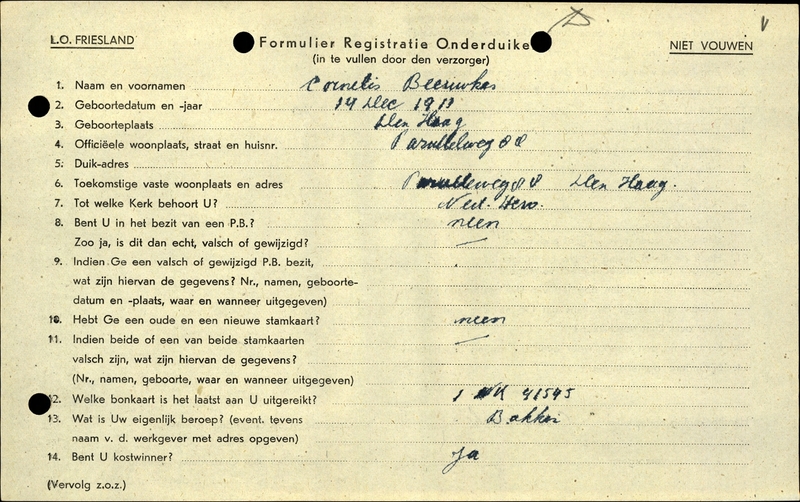 L.O. FRIESLAND
Formulier Registratie Onderduike
NIET VOUWEN
(in te vullen door den verzorger)
1. Naam en voornamen Cornelis Beeuwkes
2. Geboortedatum en -jaar 14 Dec 1911
3. Geboorteplaats Den Haag
4. Officiëele woonplaats, straat en huisnr. 88
5. Duik-adres
6. Toekomstige vaste woonplaats en adres 88 Den Haag.
7. Tot welke Kerk behoort U? Ned. Herv.
8. Bent U in het bezit van een P.B.? neen
Zoo ja, is dit dan echt, valsch of gewijzigd? —
9. Indien Ge een valsch of gewijzigd P.B. bezit,
wat zijn hiervan de gegevens? Nr., namen, geboorte-
datum en -plaats, waar en wanneer uitgegeven)
10. Hebt Ge een oude en een nieuwe stamkaart? neen
11. Indien beide of een van beide stamkaarten —
valsch zijn, wat zijn hiervan de gegevens?
(Nr., namen, geboorte, waar en wanneer uitgegeven)
12. Welke bonkaart is het laatst aan U uitgereikt? 41545
13. Wat is Uw eigenlijk beroep? (event. tevens Bakker
naam v. d. werkgever met adres opgeven)
14. Bent U kostwinner? Ja
(Vervolg z.o.z.)